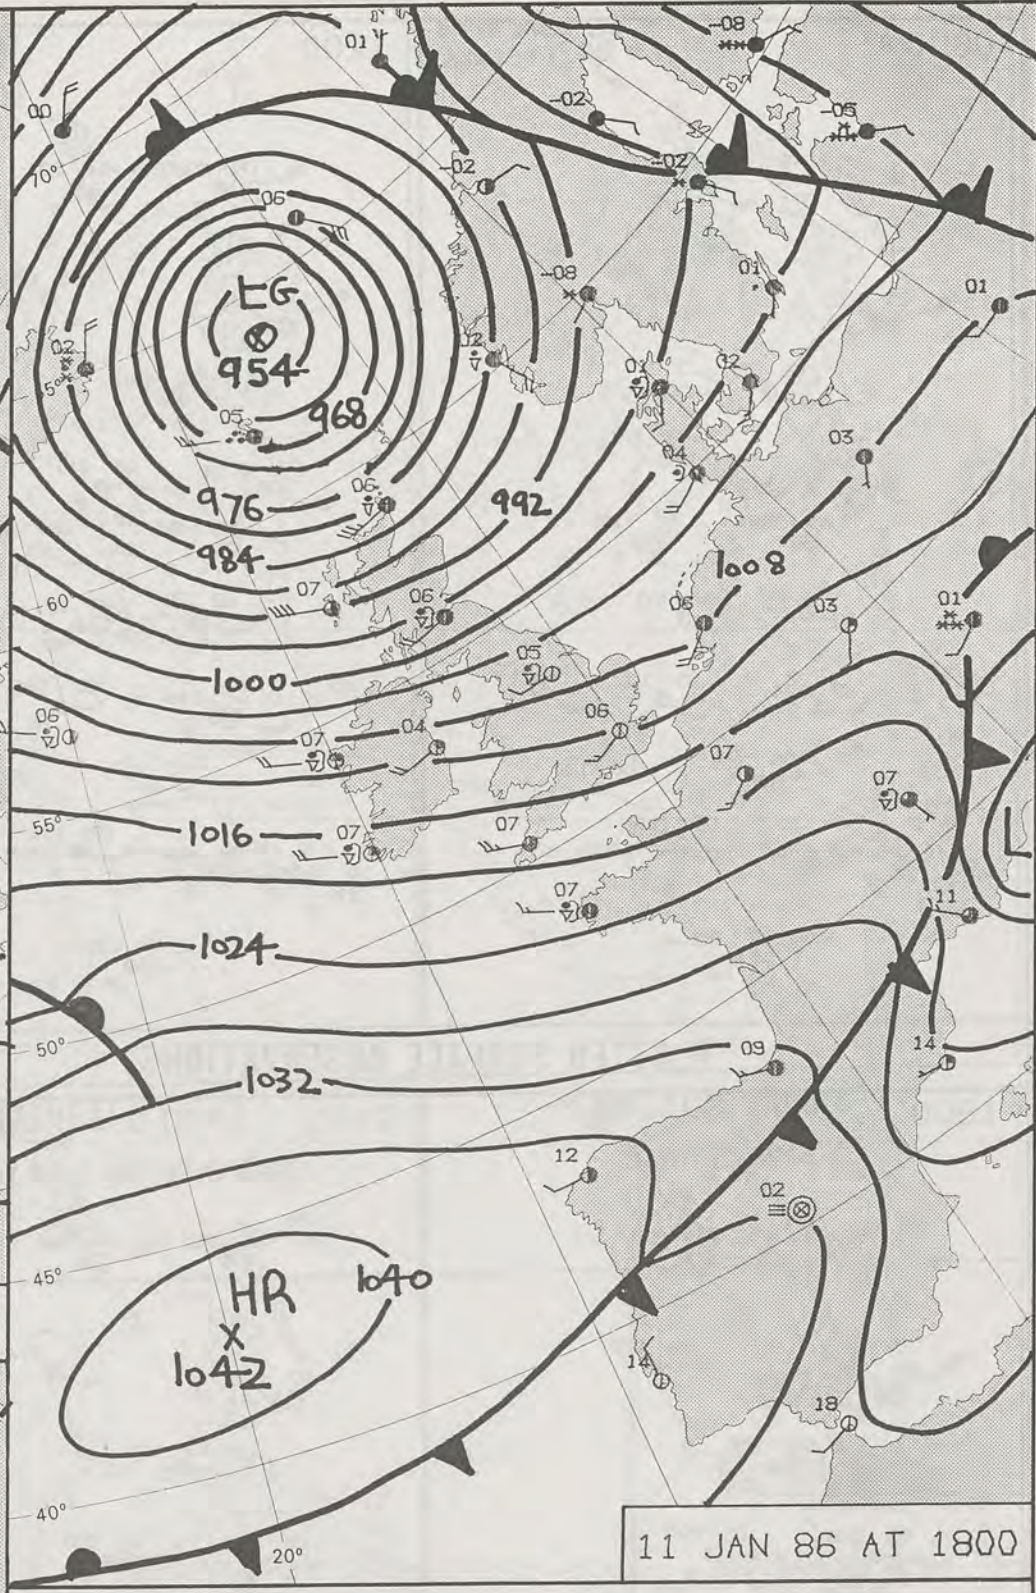 -08
01
00
-02
-05
-02
-02
70°
06
-08
01
01
LG
02
12
954
01
02
5°
968
05
03
04
06
976
992
984
1008
07
06
01
60°
06
03
05
1000
06
06
04
07
07
07
55°
1016
07
07
07
11
1024
50°
09
14
1032
12
02
45°
HR
1040
1042
14
18
40°
20°
11 JAN 86 AT 1800